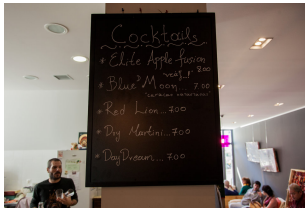 Cocktails
* Elite Apple fusion
8.00
* Blue Moon... 7.00
* Red Lion... 7.00
* Dry Martini... 7.00
* Day Dream... 7.00